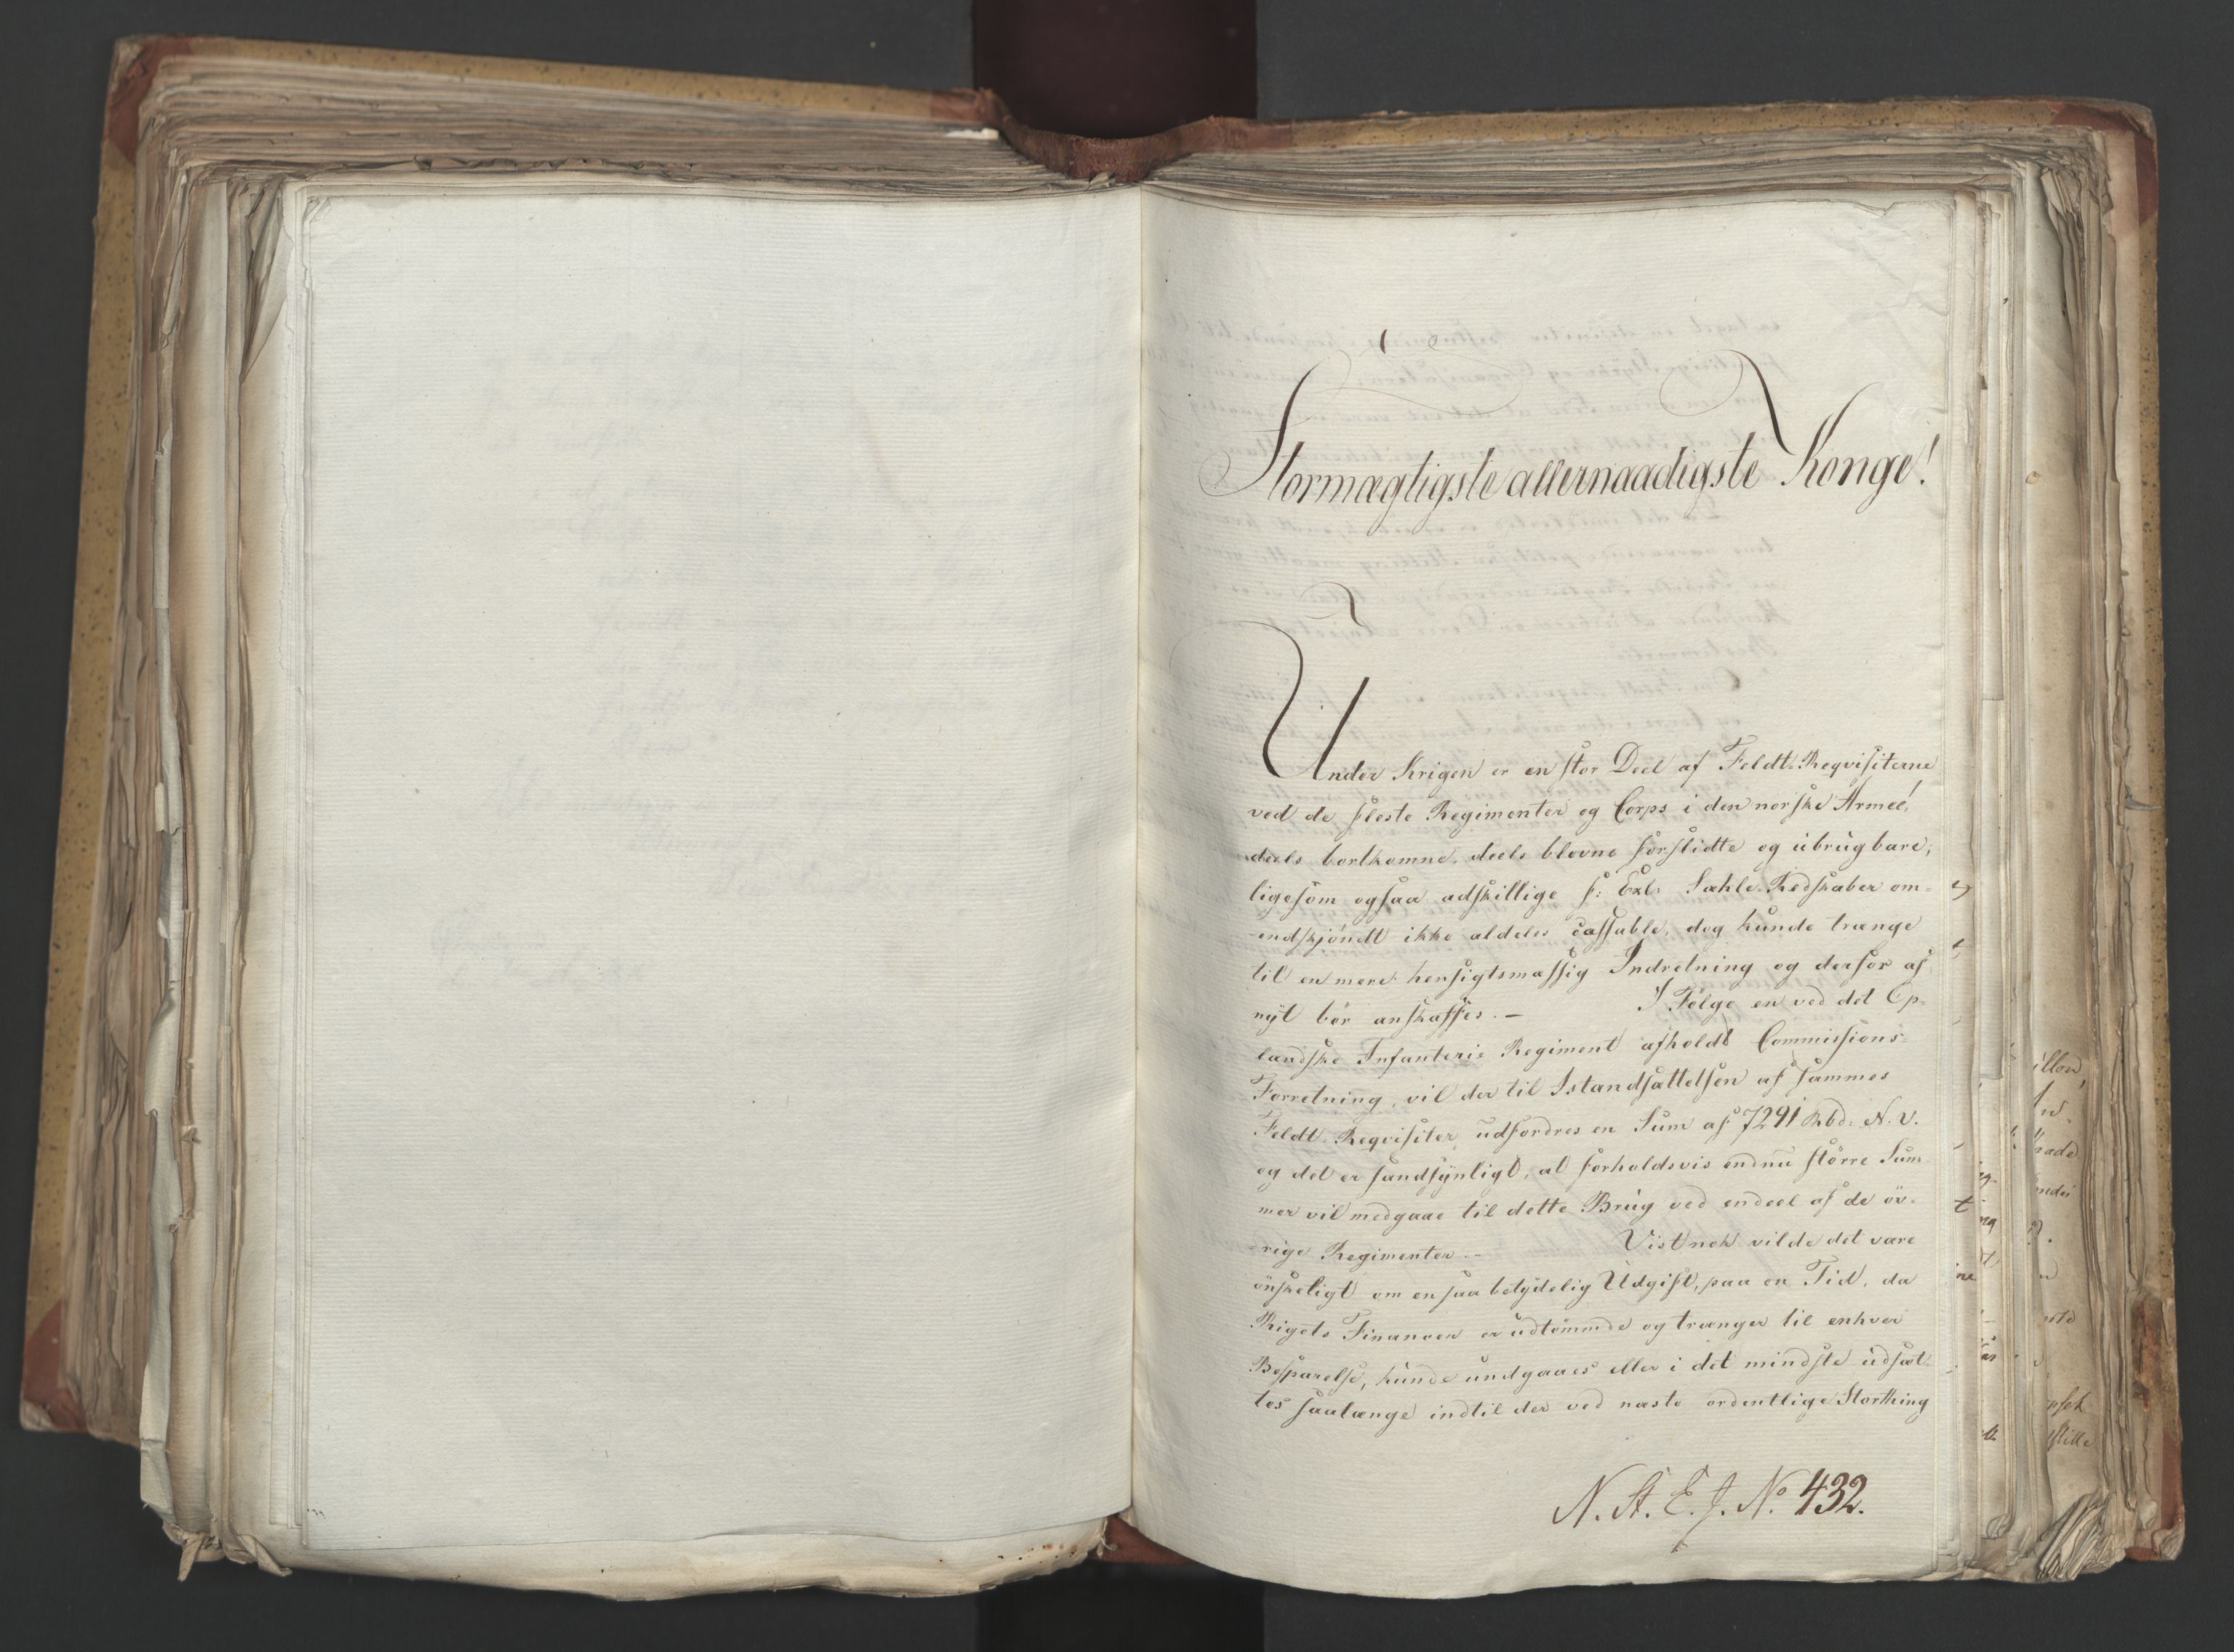 Stormægtigste allernaadigste Konge!
Under Krigen er en stor Deel af Feldt-Reqvisiterne
ved de fleste Regimenter og Corps i den norske Armee,
deels bortkomne, deels blevne forslidte og ubrugbare,
ligesom ogsaa adskillige f: Ex: Sahle-Redskaber om-
endskjöndt ikke aldeles cassable, dog kunde trænge
til en mere hensigtsmæssig Indretning og derfor af
nyt bör anskaffes. —
I Fölge en ved det Op-
landske Infanterie Regiment afholdt Commissions-
Forretning, vil der til Istandsættelsen af sammes
Feldt-Reqvisiter udfordres en Sum af 7291 Rbd. N. V.
og det er sandsynligt, at forholdsvis endnu större Sum-
mer vil medgaae til dette Brug ved endeel af de öv-
rige Regimenter. —
Vistnok vilde det være
önskeligt om en saa betydelig Udgift, paa en Tid, da
Rigets Financer er udtömmde og trænger til enhver
Besparelse, kunde undgaaes eller i det mindste udsæt-
tes saalænge indtil der ved næste ordentlige Storthing
N. St. E. J. No. 432.